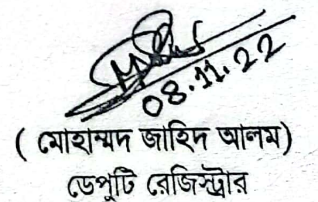 08.11.22
( মোহাম্মদ জাহিদ আলম)
ডেপুটি রেজিস্ট্রার